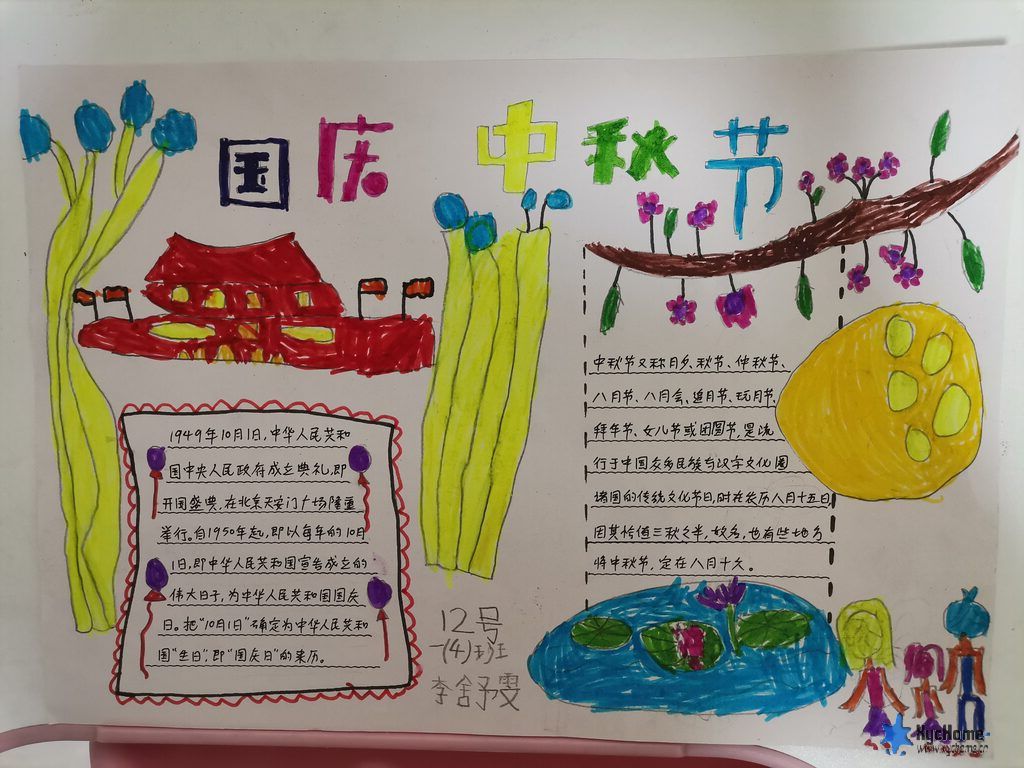 国庆 中秋节
1949年10月1日,中华人民共和
国中央人民政府成立典礼,即
开国盛典,在北京天安门广场隆重
举行。自1950年起,即以每年的10月
1日,即中华人民共和国宣告成立的
伟大日子,为中华人民共和国国庆
日。把“10月1日”确定为中华人民共和
国“生日”,即“国庆日”的来历。
中秋节又称月夕、秋节、仲秋节、
八月节、八月会、追月节、玩月节、
拜月节、女儿节或团圆节,是流
行于中国众多民族与汉字文化圈
诸国的传统文化节日,时在农历八月十五日
因其恰值三秋之半,故名,也有些地方
将中秋节,定在八月十六。
12号
一(4)班
李舒雯
KycHome
www.kychome.cn